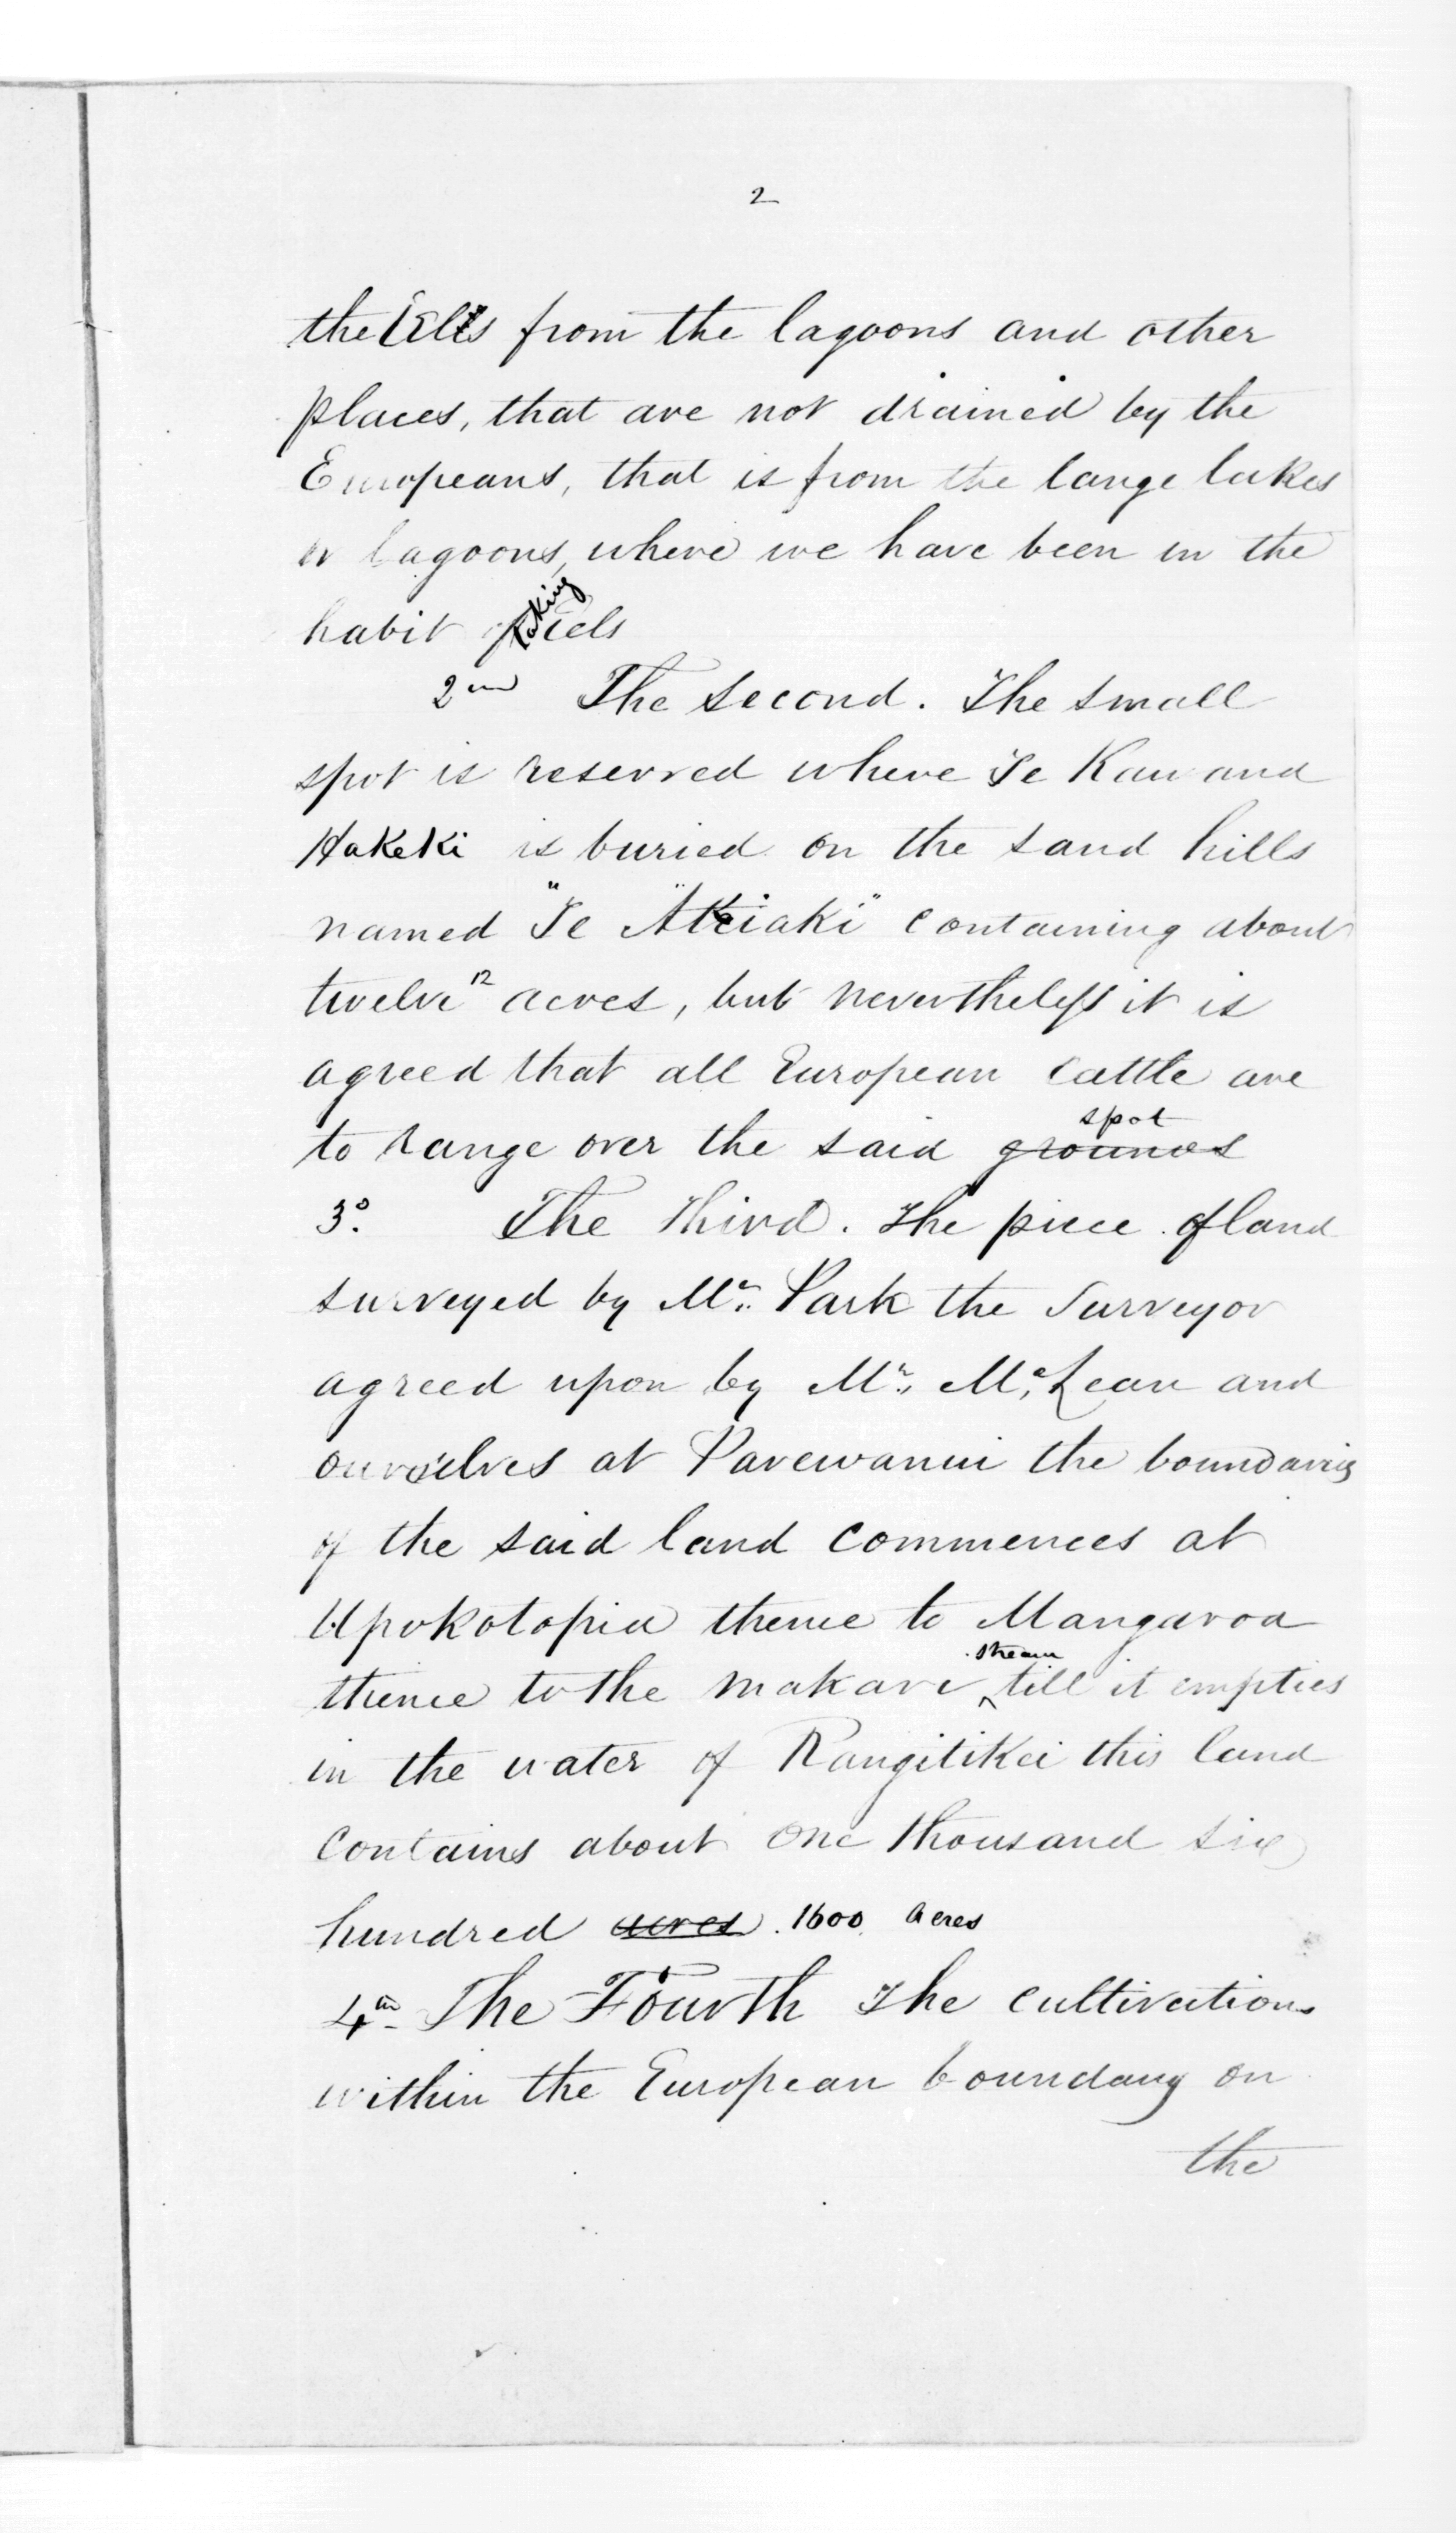 2
the Eels from the lagoons and other
places, that are not drained by the
Europeans, that is from the large lakes
or lagoons, where we have been in the
habit of taking eels
2nd The Second. The small
spot is reserved where Te Kau and
Hakeki is buried on the sand hills
named "Te Akeiaki" containing about
twelve 12 acres, but nevertheless it is
agreed that all European Cattle are
spot
to range over the said grounds
3d. The Third. The piece of land
surveyed by Mr. Park the Surveyor
agreed upon by Mr. McLean and
ourselves at Parewanui the boundaries
of the said land commences at
Upokotopia thence to Mangaroa
stream
thence to the Makare till it empties
in the water of Rangitikei this land
contains about One Thousand six
hundred acres. 1600 acres
4th The Fourth The cultivations
within the European boundary on
the